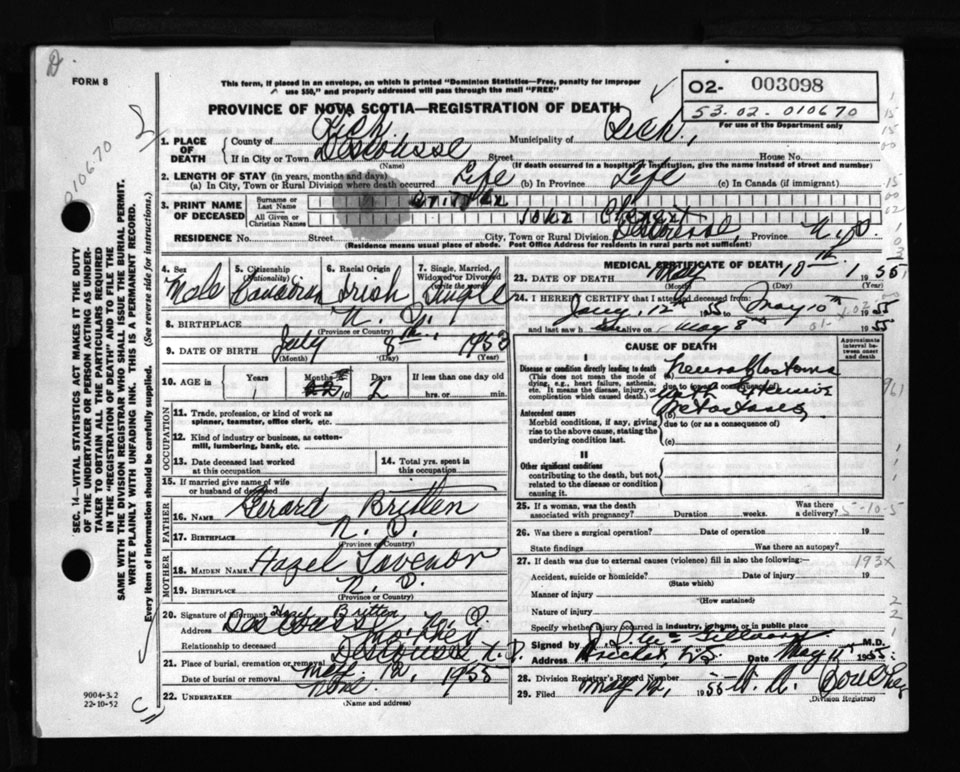 FORM 8
This form, if placed in an envelope, on which is printed "Dominion Statistics—Free, penalty for improper
use $50," and properly addressed will pass through the mail "FREE"
O2- 003098
53.02.010670
For use of the Department only
PROVINCE OF NOVA SCOTIA—REGISTRATION OF DEATH
010670
1. PLACE OF DEATH
County of Rich. Municipality of Rich.,
If in City or Town Descousse Street House No.
(Name) (If death occurred in a hospital or institution, give the name instead of street and number)
2. LENGTH OF STAY (in years, months and days)
(a) In City, Town or Rural Division where death occurred Life (b) In Province Life (c) In Canada (if immigrant)
3. PRINT NAME OF DECEASED
Surname or Last Name
All Given or Christian Names John
RESIDENCE No. Street City or Town Descousse Province N.S.
(Residence means usual place of abode. Post Office Address for residents in rural parts not sufficient)
4. Sex Male
5. Citizenship (Nationality) Canadian
6. Racial Origin Irish
7. Single, Married, Widowed or Divorced (write the word) Single
8. BIRTHPLACE N. S.
(Province or Country)
9. DATE OF BIRTH July 8th, 1953
(Month) (Day) (Year)
10. AGE is Years Months Days If less than one day old
1 10 2 hrs. or min.
OCCUPATION
11. Trade, profession, or kind of work as spinner, teamster, office clerk, etc.
12. Kind of industry or business, as cotton-mill, lumbering, bank, etc.
13. Date deceased last worked at this occupation
14. Total yrs. spent in this occupation
15. If married give name of wife or husband of deceased
FATHER
16. NAME Gerard Britten
17. BIRTHPLACE N. S.
(Province or Country)
MOTHER
18. MAIDEN NAME Hazel
19. BIRTHPLACE N. S.
(Province or Country)
20. Signature of informant Hazel Britten
Address Descousse N. S.
Relationship to deceased Mother
21. Place of burial, cremation or removal Descousse N. S.
Date of burial or removal May 12, 1955
22. UNDERTAKER None
(Name and address)
MEDICAL CERTIFICATE OF DEATH
23. DATE OF DEATH May 10th 1955
(Month) (Day)
24. I HEREBY CERTIFY that I attended deceased from
Jany. 12th 1955 to May 10th 1955
and last saw h alive on May 8th 1955
CAUSE OF DEATH
Approximate interval between onset and death
I
Disease or condition directly leading to death
(This does not mean the mode of dying, e.g., heart failure, asthenia, etc. It means the disease, injury, or complication which caused death.)
Neuroblastoma
due to (or as a consequence of)
with extensive
metastases
Antecedent causes
Morbid conditions, if any, giving rise to the above cause, stating the underlying condition last.
due to (or as a consequence of)
(c)
II
Other significant conditions
contributing to the death, but not related to the disease or condition causing it.
25. If a woman, was the death associated with pregnancy? Duration weeks. Was there a delivery?
5-10-5
26. Was there a surgical operation? Date of operation 19
State findings Was there an autopsy?
27. If death was due to external causes (violence) fill in also the following:—
193x
Accident, suicide or homicide? Date of injury 19
(State which)
Manner of injury
(How sustained)
Nature of injury
Specify whether injury occurred in industry, in home, or in public place
Signed by M.D.
Address Date May 12 1955
28. Division Registrar's Record Number
29. Filed May 12, 1955
(Division Registrar)
SEC. 14—VITAL STATISTICS ACT MAKES IT THE DUTY
OF THE UNDERTAKER OR PERSON ACTING AS UNDER-
TAKER TO OBTAIN ALL THE PARTICULARS REQUIRED
IN THE "REGISTRATION OF DEATH" AND TO FILE THE
SAME WITH THE DIVISION REGISTRAR WHO SHALL ISSUE THE BURIAL PERMIT.
WRITE PLAINLY WITH UNFADING INK. THIS IS A PERMANENT RECORD.
Every item of information should be carefully supplied. (See reverse side for instructions.)
9004-3.2
22-10-52